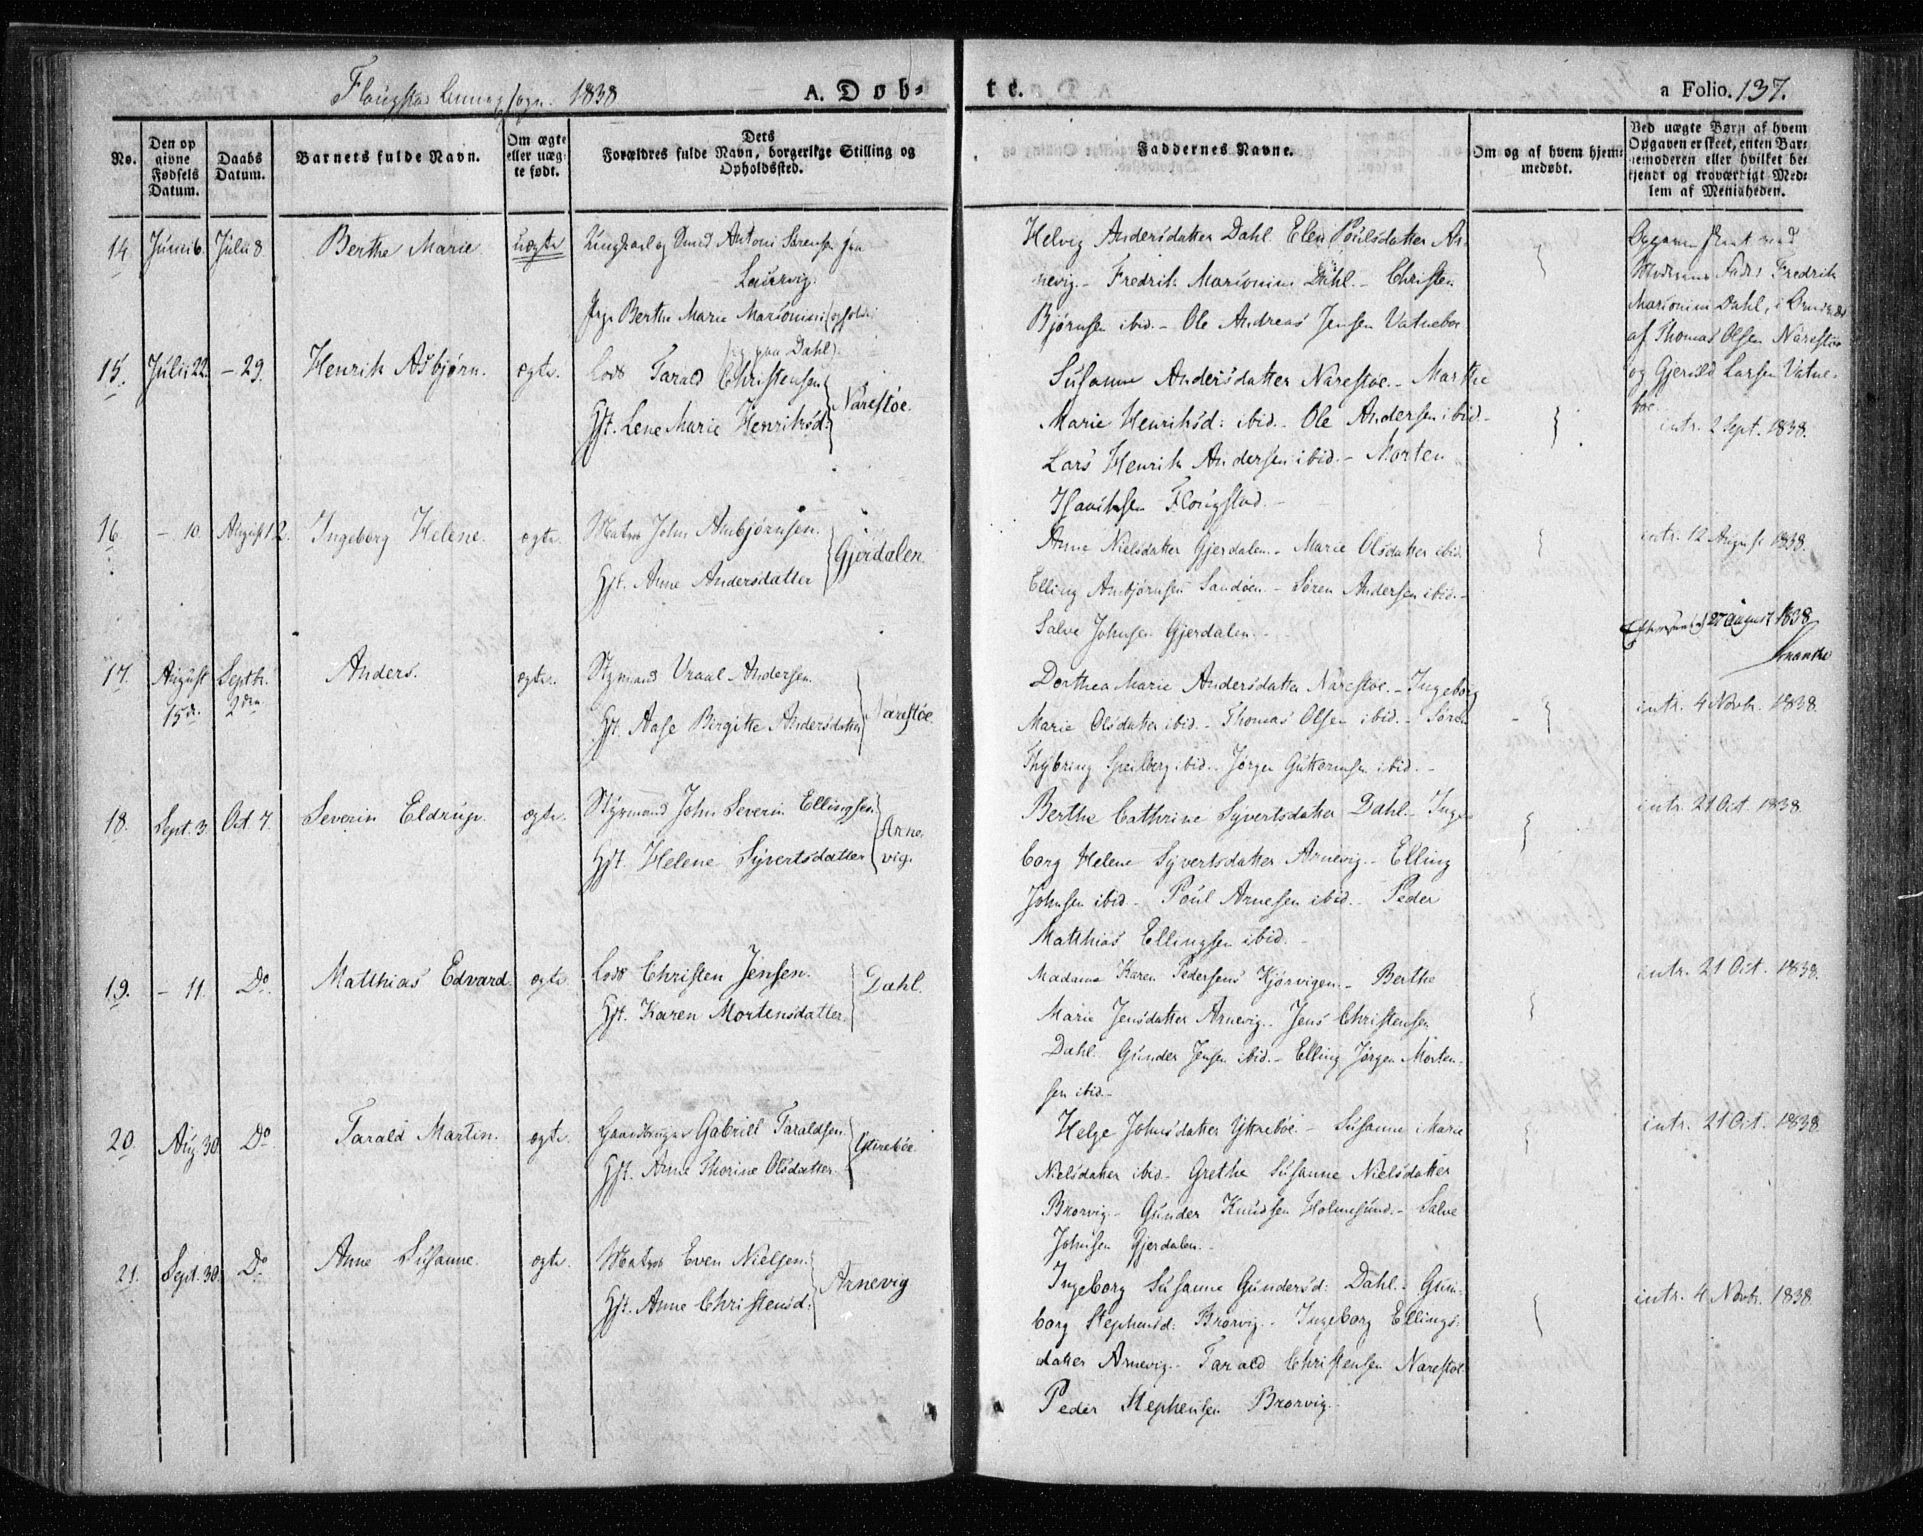 1838
A. Døb=
te.
a Folio. 137.
No.
Den op
givne
Fødsels
Datum.
Daabs
Datum.
Barnets fulde Navn.
Om ægte
eller uæg-
te født.
Dets
Forældres fulde Navn, borgerlige Stilling og
Opholdssted.
Faddernes Navne.
Om og af hvem hjem-
medøbt.
Ved uægte Børn af hvem
Opgaven er skeet, enten Bar-
nemoderen eller hvilket be-
kjendt og troværdigt Med-
lem af Menigheden.
14 Junii 6. Julii 8 Berthe Marie uægte Ungkarl og Antoni Sørensen fra
Laurvig.
Pige Berthe Marie Marionini
paa Dahl).
Helvig Andersdatter Dahl. Elen Poulsdatter Ar-
nevig. Fredrik Marionini Dahl. Christen
Bjørnsen ibid. Ole Andreas Jensen Vatneboe
Fredrik
Marionini Dahl,
af Thomas Olsen Narestøe
og Gjeruld Larsen Vatne-
boe
15. Julii 22. - 29. Henrik Asbjørn. ægte. Lods Tarald Christensen
Hst. Lene Marie Henriksd: Narestøe.
Susanne Andersdatter Narestøe. Marthe
Marie Henriksd: ibid. Ole Andersen ibid.
Lars Henrik Andersen ibid. Morten
Flougstad.
intr. 2 Sept. 1838.
16. - 10. August 12. Ingeborg Helene. ægte. Matros John Ambjørnsen.
Hst. Anne Andersdatter Gjerdalen.
Anne Nielsdatter Gjerdalen. Marie Olsdatter ibid.
Elling Ambjørnsen Sandøen. Søren Andersen ibid.
Salve Johnsen Gjerdalen.
intr. 12 August 1838.
27 August 1838
17. August
15de. Septbr.
2den. Anders. ægte. Styrmand Vraal Andersen.
Hst. Aase Birgitte Andersdatter Narestøe.
Dorthea Marie Andersdatter Narestøe. Ingeborg
Marie Olsdatter ibid. Thomas Olsen ibid. Søren
Thybring Speilberg ibid. Jørgen Guttormsen ibid.
intr. 4 Novbr. 1838.
18. Sept. 3. Oct. 7. Severin Eldrup. ægte. Styrmand John Severin Ellingsen
Hst. Helene Syvertsdatter Arne-
vig.
Berthe Cathrine Syvertsdatter Dahl. Inge-
borg Helene Syvertsdatter Arnevig. Elling
Johnsen ibid. Poul Arnesen ibid. Peder
Matthias Ellingsen ibid.
intr. 21 Oct. 1838.
19. - 11. Do. Matthias Edvard. ægte. Lods Christen Jensen.
Hst. Karen Mortensdatter. Dahl.
Madame Karen Pedersens Kjørvigen. Berthe
Marie Jensdatter Arnevig. Jens Christensen
Dahl. Gunder Jensen ibid. Elling Jørgen Morten-
sen ibid.
intr. 21 Oct. 1838.
20. Aug 30. Do. Tarald Martin. ægte. Gaardbruger Gabriel Taraldsen.
Hst. Anne Thorine Olsdatter. Ytrebøe.
Helge Johnsdatter Ytrebøe. Susanne Marie
Nielsdatter ibid. Grethe Susanne Nielsdatter
Brorvig. Gunder Knudsen Holmesund. Salve
Johnsen Gjerdalen.
intr. 21 Oct. 1838.
21. Sept. 30. Do. Anne Susanne. ægte. Matros Even Nielsen.
Hst. Anne Christensd: Arnevig
Ingeborg Susanne Gundersd: Dahl. Gun-
borg Stephensd: Brorvig. Ingeborg Ellings-
datter Arnevig. Tarald Christensen Narestøe
Peder Stephensen Brorvig.
intr. 4 Novbr. 1838